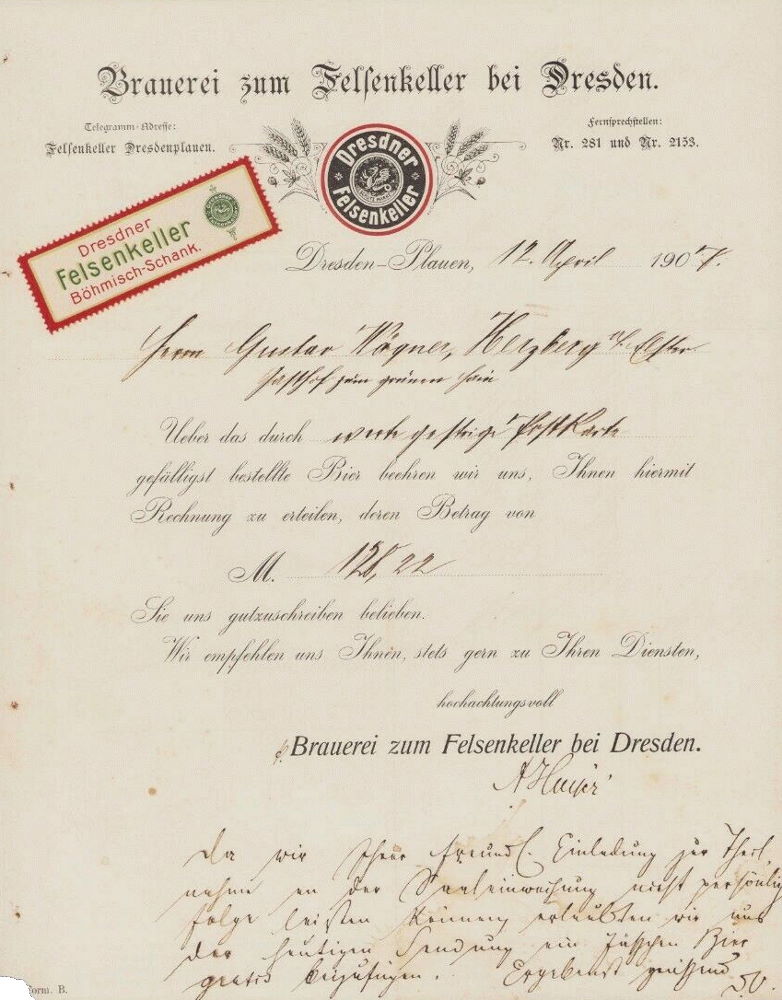 Brauerei zum Felsenkeller bei Dresden.
Telegramm-Adresse:
Felsenkeller Dresdenplauen.
Fernsprechstellen:
Nr. 281 und Nr. 2153.
Dresdner
Felsenkeller
Dresdner
Felsenkeller
Böhmisch-Schank.
Dresden-Plauen, 12. April 1907.
Herrn Gustav Wagner, Herzberg a/Elster
Gasthof zum grünen Hain
Ueber das durch werte gestrige Postkarte
gefälligst bestellte Bier beehren wir uns, Ihnen hiermit
Rechnung zu erteilen, deren Betrag von
M. 128,22
Sie uns gutzuschreiben belieben.
Wir empfehlen uns Ihnen, stets gern zu Ihren Diensten,
hochachtungsvoll
Brauerei zum Felsenkeller bei Dresden.
Da wir Ihrer freundl. Einladung zur Theil,
nahme an der Saaleinweihung nicht persönlich
folge leisten können, erlaubten wir uns
der heutigen Sendung ein Fässchen Bier
gratis beizufügen. Ergebenst grüssend
Form. B.